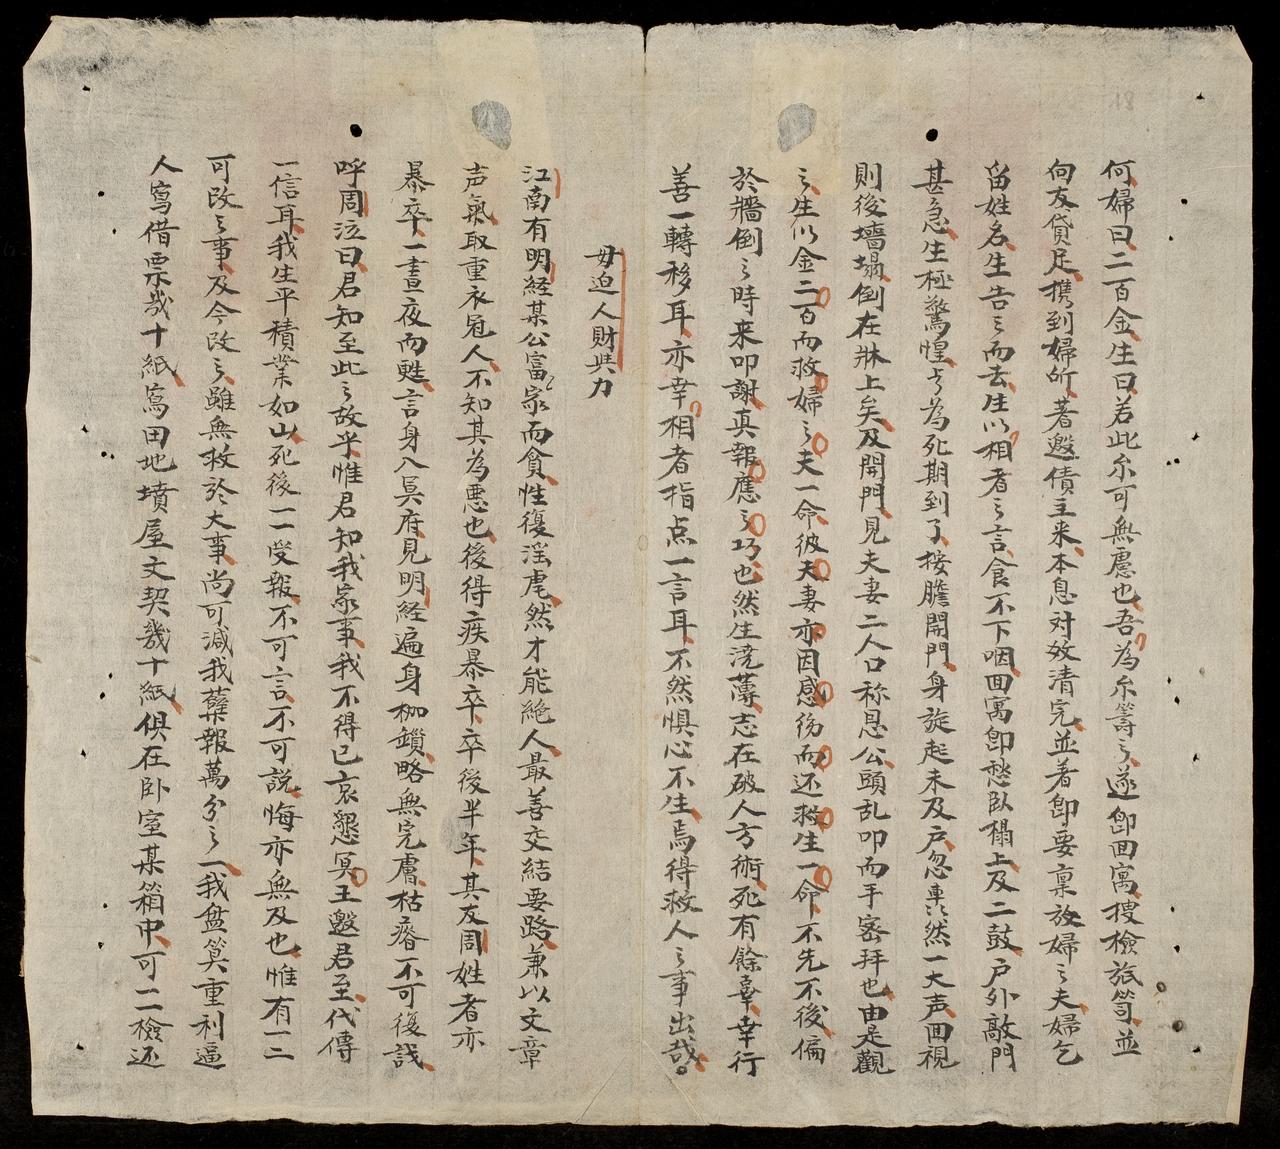 何婦曰二百金生曰若此尔可無慮也吾為尔籌之遂卽囬寓搜檢旅笥並
向友貸足携到婦所著邀債主来本息对效清完並著卽要稟放婦之夫婦乞
留姓名生告之而去生以相者之言食不下咽囬寓卽愁臥榻上及二鼓户外敲門
甚急生極驚惶以為死期到了按膽開門身旋起未及户忽轟然一大声囬視
則後墻塌倒在牀上矣及開門見夫妻二人口称恩公頭乱叩而手密拜也由是觀
之生以金二百而救婦之夫一命彼夫妻亦因感伤而还救生一命不先不後偏
於牆倒之時来叩謝真報應之巧也然生澆薄志在破人方術死有餘辜幸行
善一轉移耳亦幸相者指点一言耳不然惧心不生焉得救人之事出哉
毋迫人財共力
江南有明経某公富家而貪性復淫虐然才能絶人最善交結要路兼以文章
声氣取重衣冠人不知其為悪也後得疾暴卒卒後半年其友周姓者亦
暴卒一晝夜而甦言身入冥府見明経遍身枷鎖略無完膚枯瘠不可復識
呼周泣曰君知至此之故乎惟君知我家事我不得已哀懇冥王邀君至代傳
一信耳我生平積業如山死後一一受報不可言不可說悔亦無及也惟有一二
可改之事及今改之雖無救於大事尚可減我蘖報萬分之一我盘筭重利逼
人寫借票幾十紙寫田地墳屋文契幾十紙俱在卧室某箱中可一一檢还